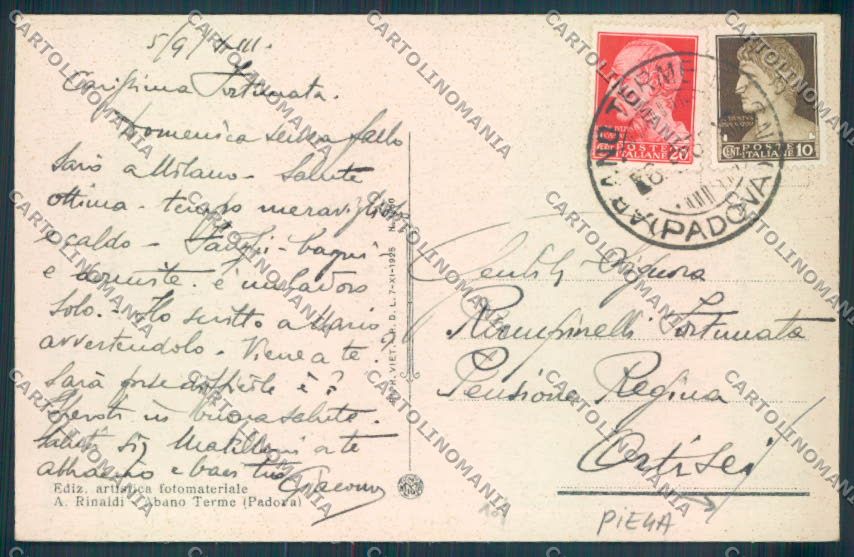 5/9 XIII.
Carissima Fortunata.
Domenica senza fallo
sarò a Milano - Salute
ottima - tempo meraviglioso
e caldo - Fanghi - bagni -
e dormite. è un lavoro
solo. - Ho scritto a Mario
avvertendolo. Viene a te?
Sarà forse difficile è?
in buona salute.
Saluti Sig. a te
abbraccio e baci tuo Giacomo
Ediz. artistica fotomateriale
A. Rinaldi - Abano Terme (Padova)
RIPR. VIET. A R. D. L. 7-XI-1925
POSTE ITALIANE
CENT. 20
POSTE ITALIANE
CENT. 10
ABANO TERME (PADOVA)
Gentile Signora
Fortunata
Pensione Regina
Ortisei
PIEGA
CARTOLINOMANIA